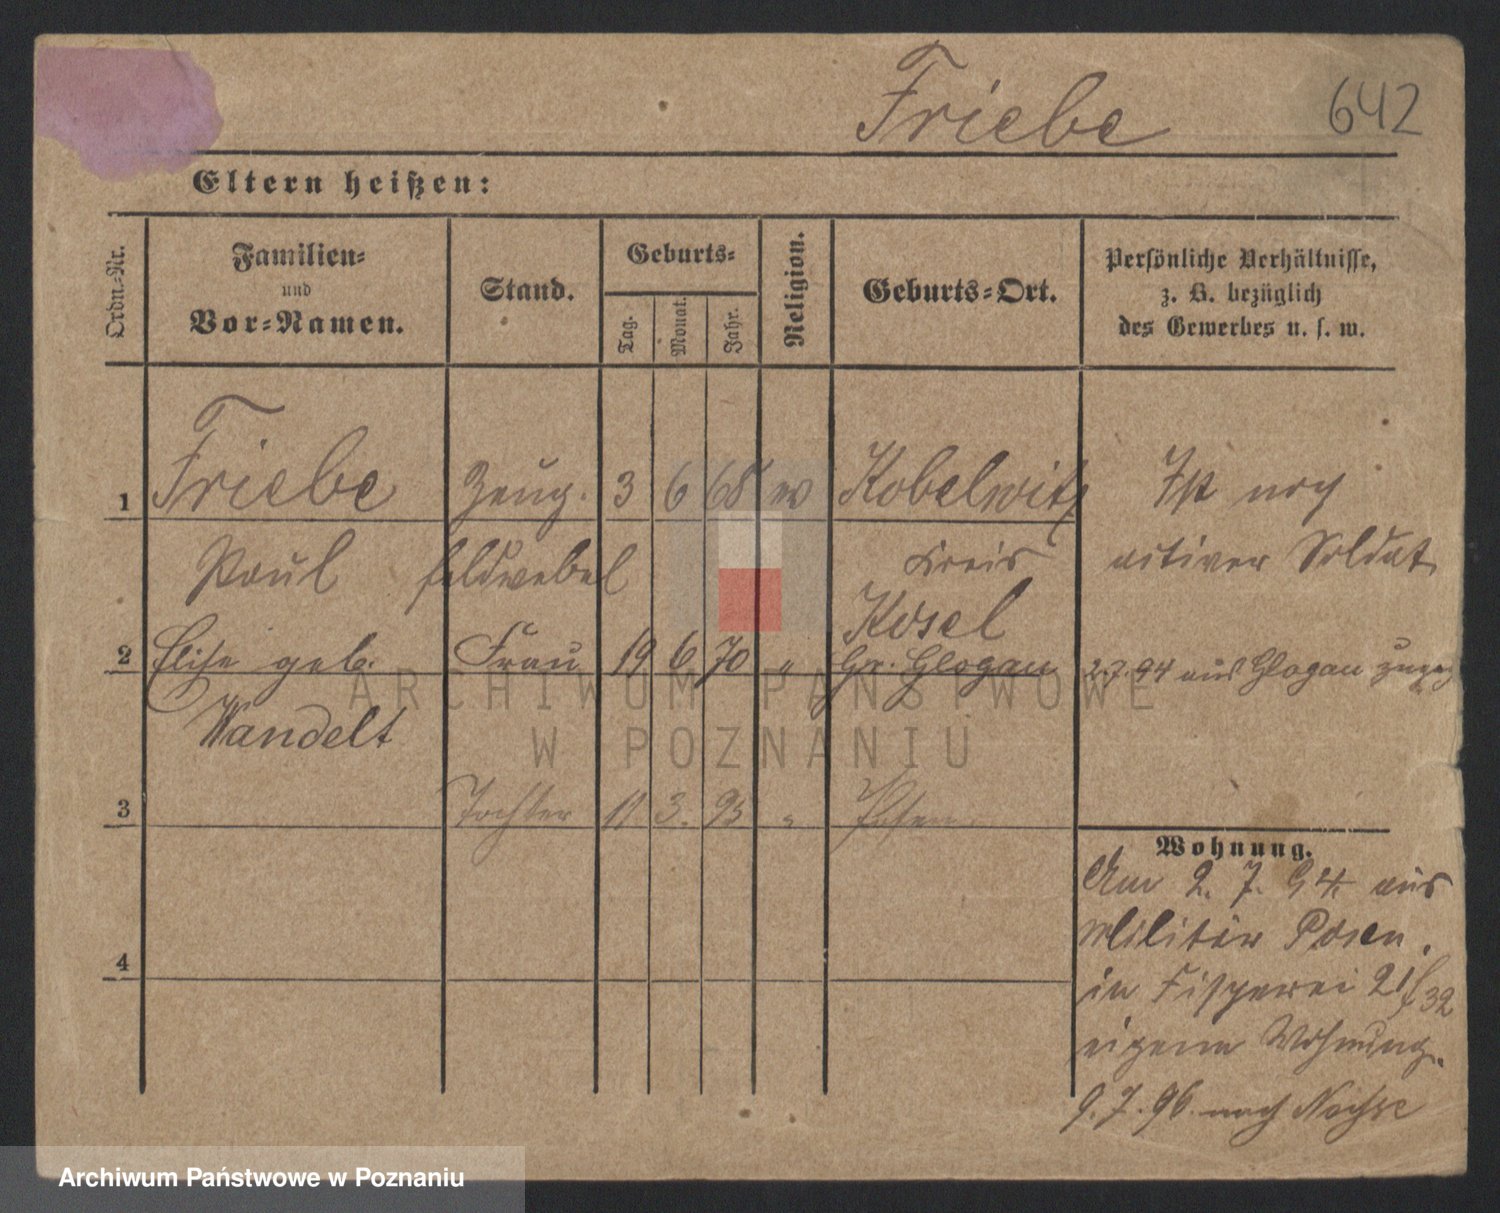 Friebe 642
Eltern heißen:
Ordn.-Nr. Familien- und Vor-Namen. Stand. Geburts- Tag. Monat. Jahr. Religion. Geburts-Ort. Persönliche Verhältnisse, z. B. bezüglich des Gewerbes u. s. w.
1 Friebe Zeug. 3 6 68 ev Kobelwitz Ist noch
Paul feldwebel Kreis activer Soldat
Kosel
2 Elise geb. Frau 19 6 70 " Gr. Glogau 2.7.94 aus Glogau zugez
Wandelt
3 Tochter 11 3. 95 " Posen
Wohnung.
Am 2. 7. 94. aus
Militär Posen.
in 21/32
4 eigene Wohnung.
9. 7. 96. nach
ARCHIWUM PAŃSTWOWE
W POZNANIU
Archiwum Państwowe w Poznaniu